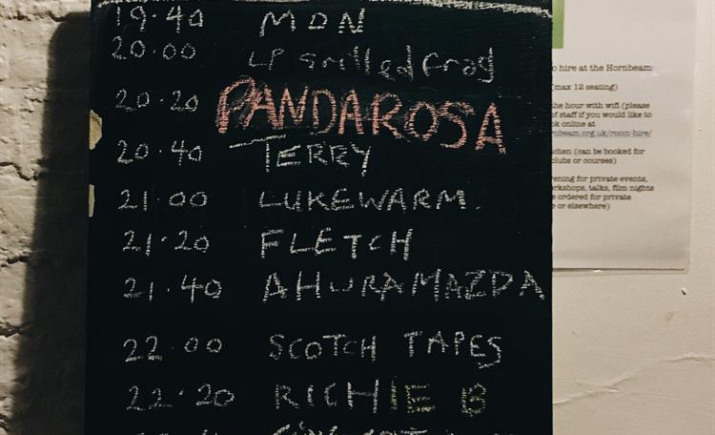 19.40 MDN
20.00 LP grilled frog
20.20 PANDAROSA
20.40 TERRY
21.00 LUKEWARM.
21.20 FLETCH
21.40 AHURA MAZDA
22.00 SCOTCH TAPES
22.20 RICHIE B
o hire at the Hornbeam:
(max 12 seating)
the hour with wifi (please
of staff if you would like to
ok online at
nbeam.org.uk/room-hire/
chen (can be booked for
clubs or courses)
ening for private events,
rkshops, talks, film nights
e ordered for private
e or elsewhere)